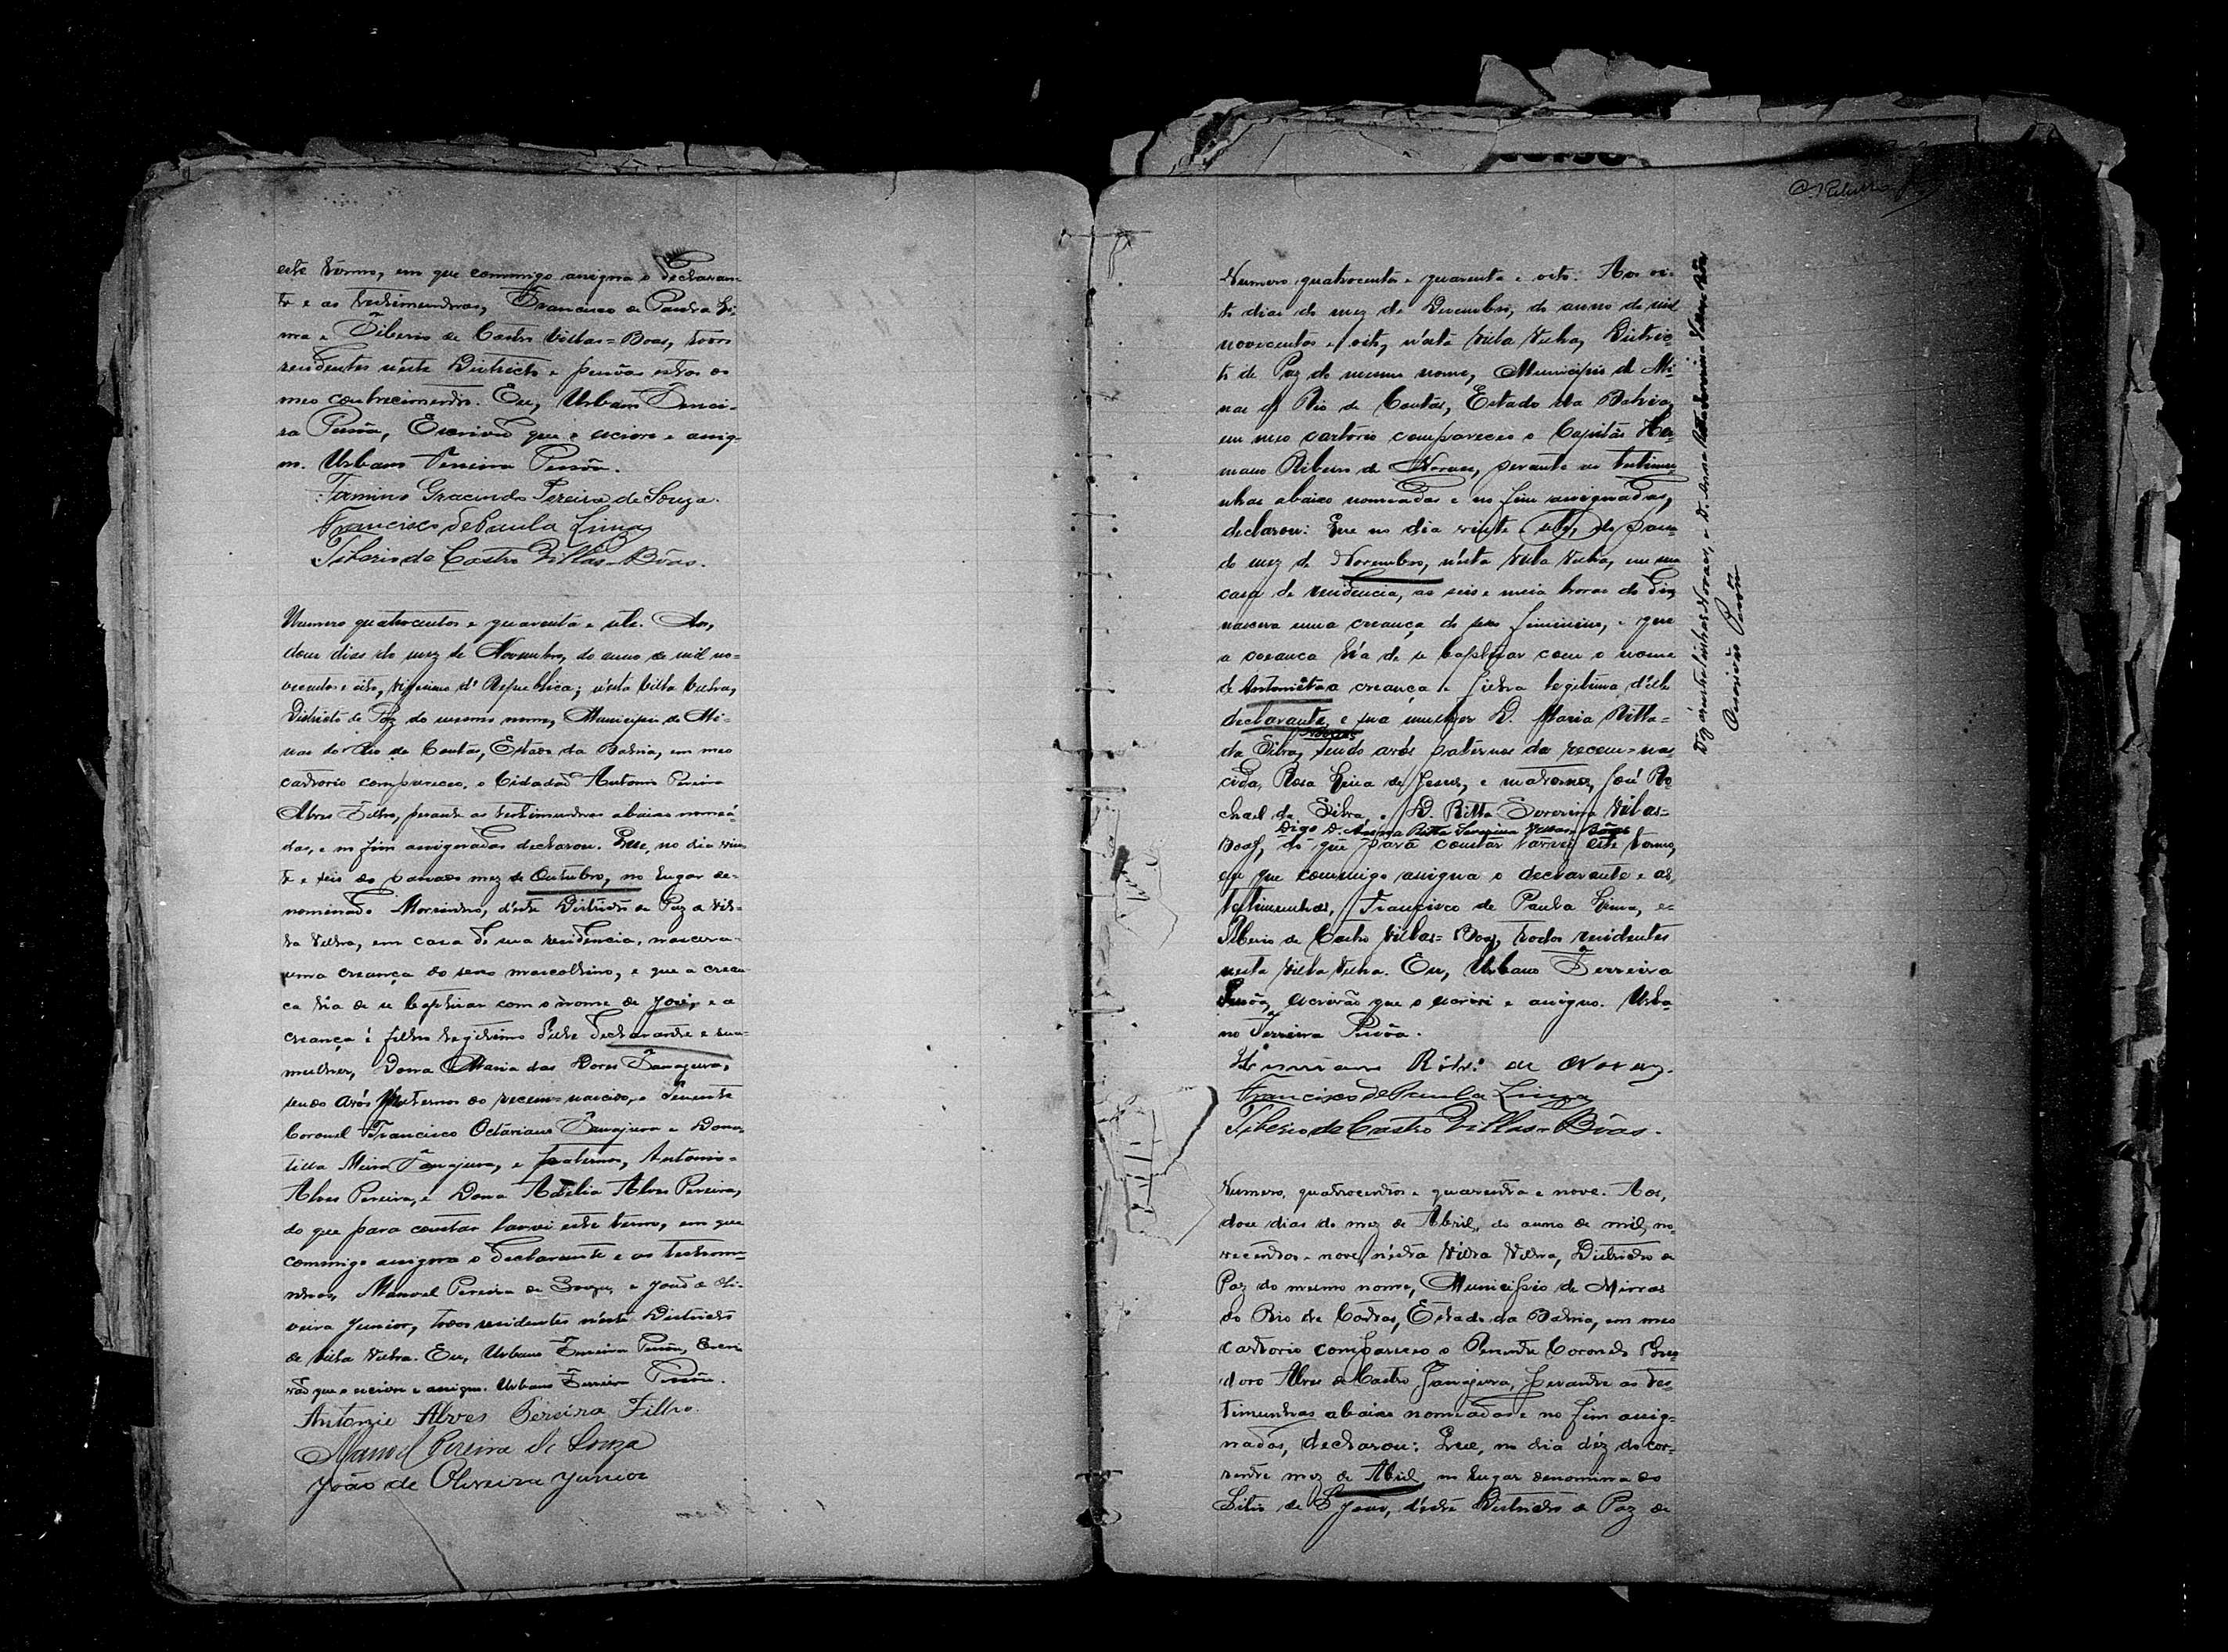 este termo, em que commigo assigna o declaran-
te e as testimunhas, Francisco de Paula Li-
ma e Tiberio de Castro Villas=Boas, todos
residentes n'este Districto e pessôas estas de
meo conhecimento. Eu, Urbano Ferrei-
ra Pessôa, Escrivão que o escrevi e assig-
no. Urbano Ferreira Pessôa.
Firmino Gracindo Pereira de Souza.
Francisco de Paula Lima
Tiberio de Castro Villas=Bôas.
Numero quatrocentos e quarenta e sete. Aos,
dous dias do mez de Novembro, do anno de mil no=
vecentos e oito, vigesimo d' Republica; n'esta Villa Velha,
Districto de Paz do mesmo nome, Municipio de Mi-
nas do Rio de Contas, Estado da Bahia, em meo
cartorio compareceo, o Cidadão Antonio Pereira
Alves Filho, perante as testimunhas abaixo nomea-
das, e no fim assignadas declarou. Que, no dia vin-
te e seis do passado mez de Outubro, no lugar de-
nominado Morrinhos, d'este Districto de Paz de Vil-
la Velha, em casa de sua residencia, nascera
uma creança do sexo mascolino, e que a crean-
ca há de se baptisar com o nome de José, e a
creança é filho legitimo d'elle declarante e sua
mulher, Dona Maria das Dores Tanajura,
sendo avós Maternos do recem=nascido, o Tenente
Coronel Francisco Octaviano Tanajura e Dona
Meira Tanajura, e paternos, Antonio
Alves Pereira, e Dona Adelia Alves Pereira,
do que para constar lavrei este termo, em que
commigo assigna o declarante e as testemu-
nhas, Manoel Pereira de Souza, e João de Oli-
veira Junior, todos residentes n'este Districto
de Villa Velha. Eu, Urbano Ferreira Pessôa, Escri-
vão que o escrevi e assigno. Urbano Ferreira Pessôa.
Antonio Alves Pereira Filho.
Manoel Pereira de Souza
João de Oliveira Junior
Numero quatrocentos e quarenta e oito. Aos oi-
to dias do mez de Dezembro, do anno de mil
novecentos e oito, n'esta Villa Velha, Distric-
to de Paz do mesmo nome, Municipio de Mi-
nas do Rio de Contas, Estado da Bahia,
em meo cartorio compareceo o Capitão Her-
mano Ribeiro de Novaes, perante as testimu-
nhas abaixo nomeadas e no fim assignadas,
declarou: Que no dia vinte sete, do passa-
do mez de Novembro, n'esta Villa Velha, em sua
casa de residencia, as seis e meia horas do dia
nascera uma creança do sexo feminino, e que
a creança há de se baptisar com o nome
de Antonieta a creança é filha legitima d'elle
declarante, e sua mulher D. Maria Ritta=
Novaes
da Silva, sendo avós paternos da recem=nas
cida, Rosa Lina de Jesus, e maternos, José Ro-
chael da Silva, e D. Ritta Severina Villas=
Digo D. Anna Ritta Severina Villas Bôas
Boas, do que para constar lavrei este termo,
em que commigo assigna o declarante e as,
testimunhas, Francisco de Paula Lima, e=
Tiberio de Castro Villas=Boas, todos residentes
nesta Villa Velha. Eu, Urbano Ferreira
Pessôa, escrivão que o escrivi e assigno. Urba-
no Ferreira Pessôa.
Hermano Ribr.º de Novaes.
Francisco de Paula Lima
Tiberio de Castro Villas=Bôas.
Numero, quatrocentos e quarenta e nove. Aos,
doze dias do mez de Abril, do anno de mil, no-
vecentos e nove, n'esta Villa Velha, Districto de
Paz do mesmo nome, Municipio de Minas
do Rio de Contas, Estado da Bahia, em meo
cartorio compareceo o Tenente Coronel
Alves de Castro Tanajura, perante as tes-
timunhas abaixo nomeadas e no fim assig-
nadas, declarou: Que, no dia déz do cor-
rente mez de Abril, no lugar denominado
Sitio de S. José, d'este Districto de Paz de
Novaes, e D. Anna Ritta Severina Villas Bôas
Pessôa